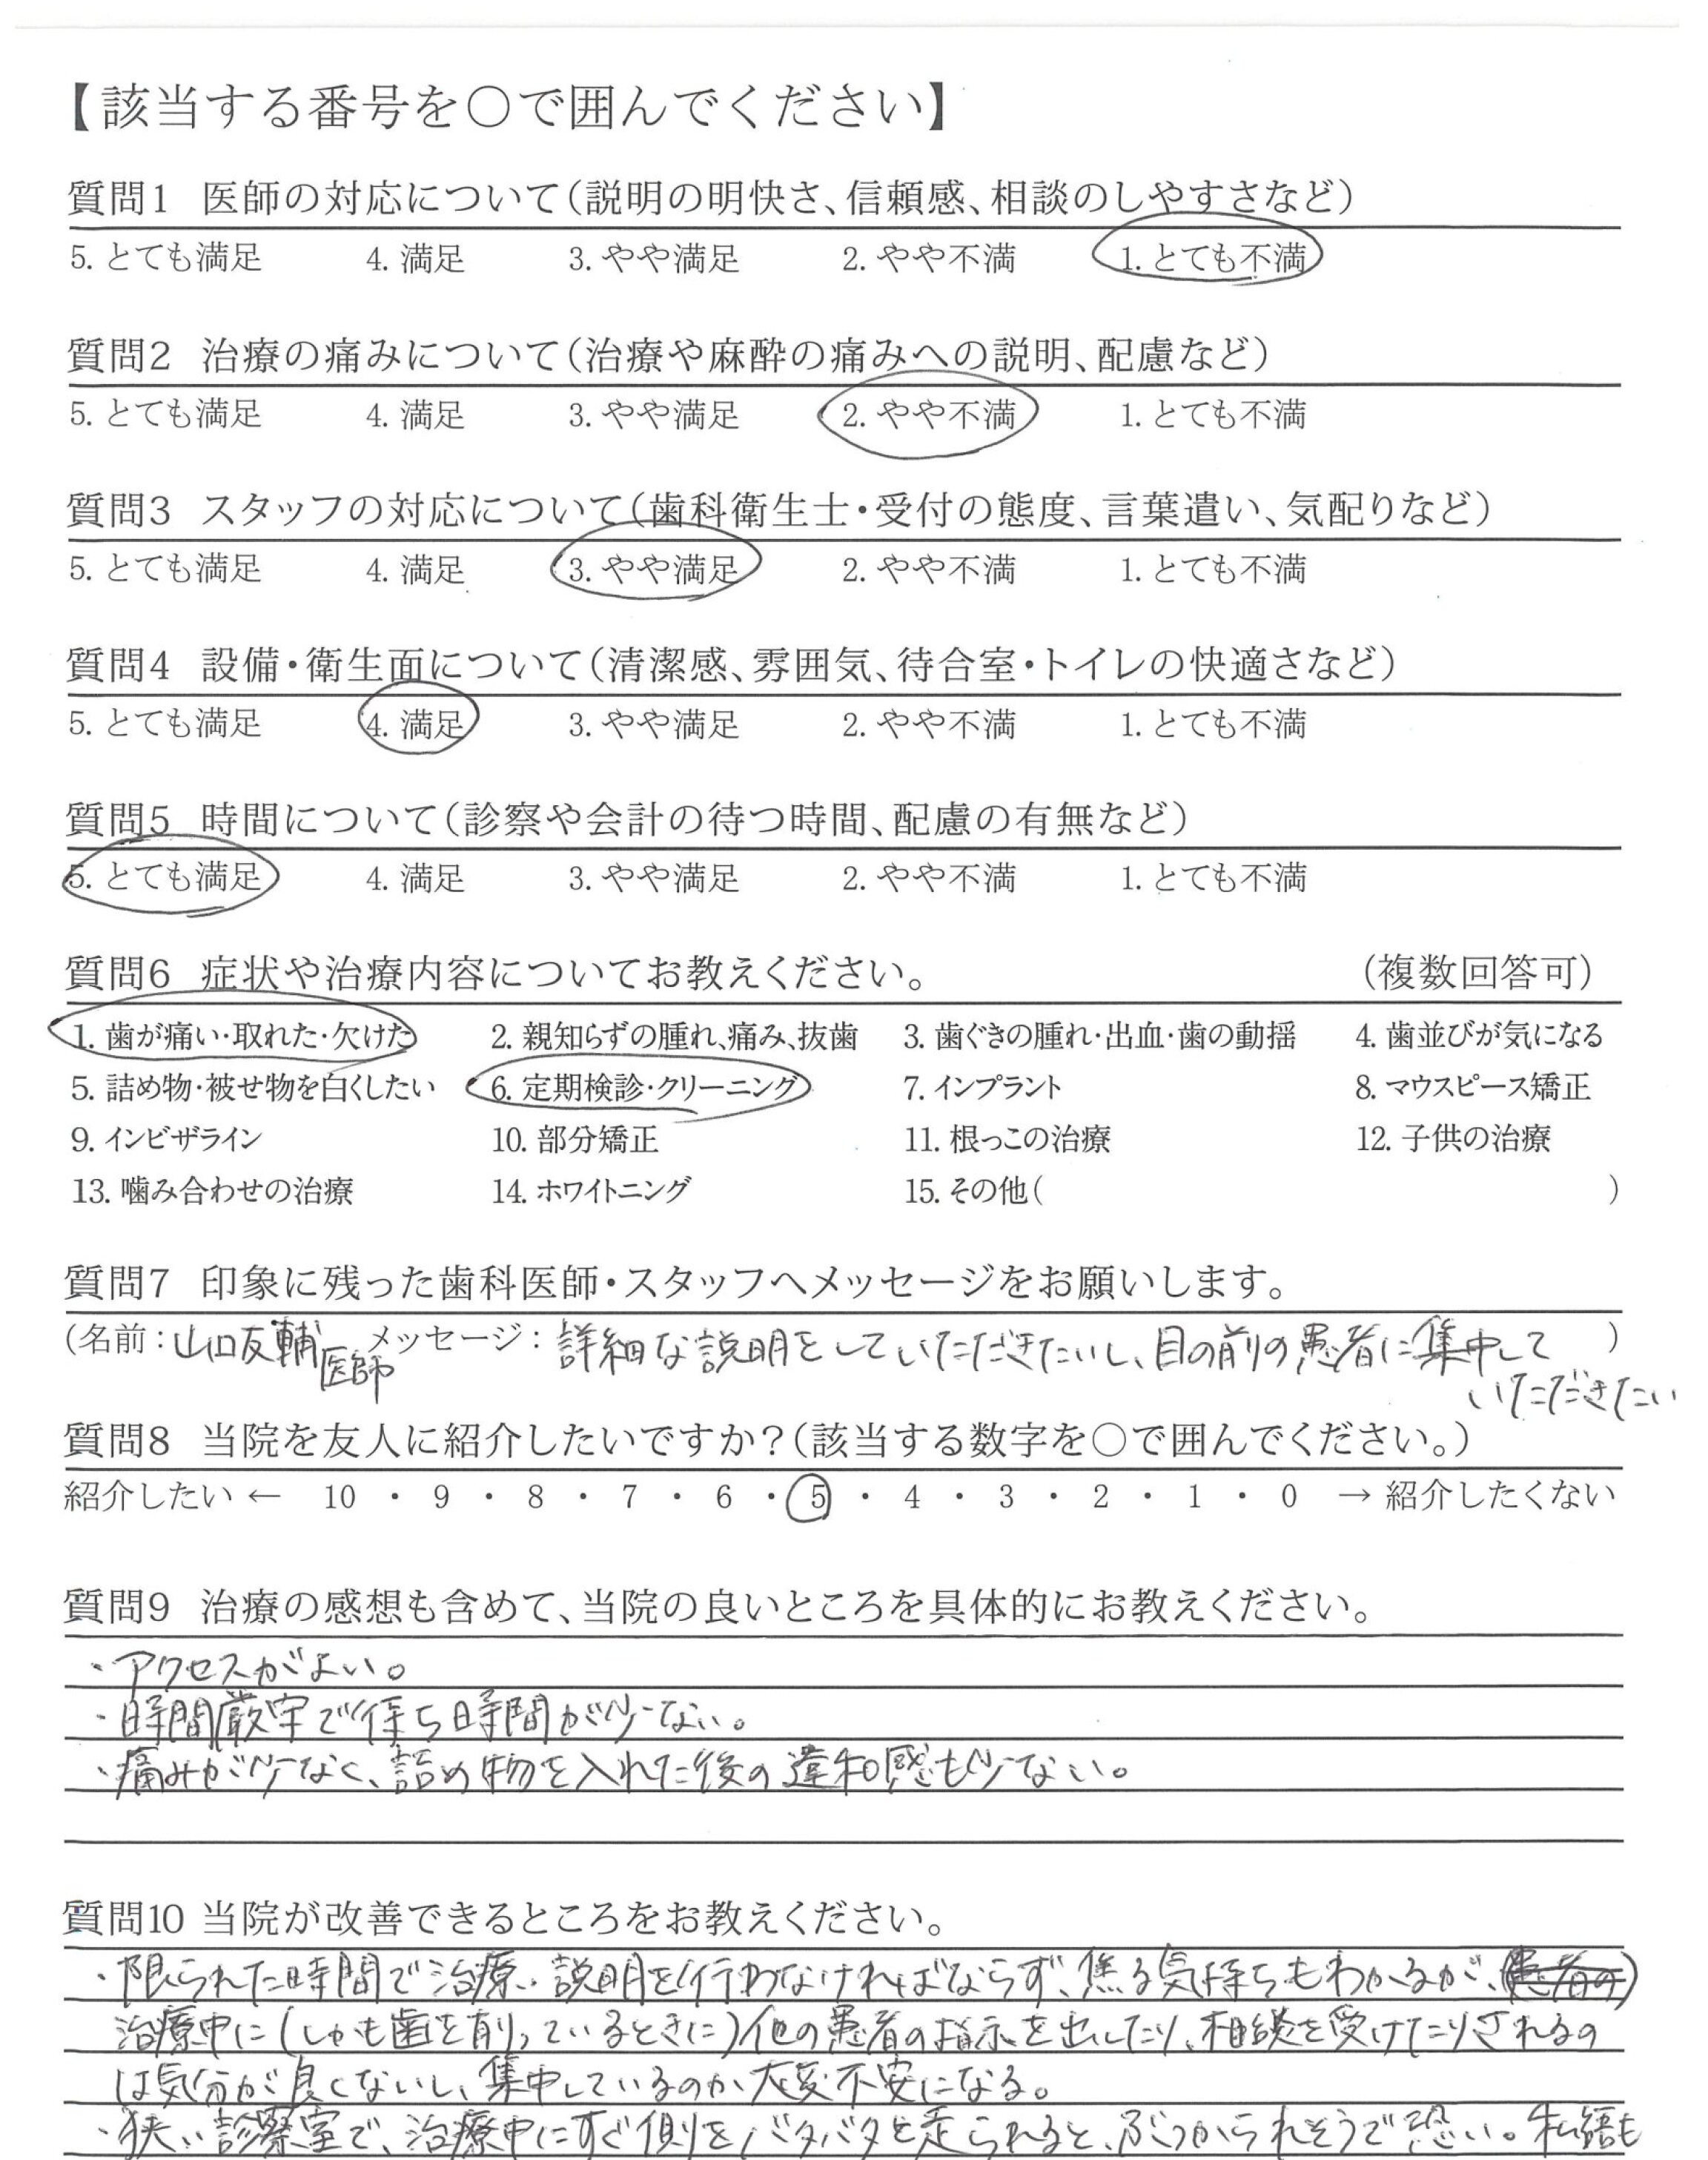 【該当する番号を○で囲んでください】
質問1 医師の対応について(説明の明快さ、信頼感、相談のしやすさなど)
5. とても満足 4. 満足 3. やや満足 2. やや不満 1. とても不満
質問2 治療の痛みについて(治療や麻酔の痛みへの説明、配慮など)
5. とても満足 4. 満足 3. やや満足 2. やや不満 1. とても不満
質問3 スタッフの対応について(歯科衛生士・受付の態度、言葉遣い、気配りなど)
5. とても満足 4. 満足 3. やや満足 2. やや不満 1. とても不満
質問4 設備・衛生面について(清潔感、雰囲気、待合室・トイレの快適さなど)
5. とても満足 4. 満足 3. やや満足 2. やや不満 1. とても不満
質問5 時間について(診察や会計の待つ時間、配慮の有無など)
5. とても満足 4. 満足 3. やや満足 2. やや不満 1. とても不満
質問6 症状や治療内容についてお教えください。 (複数回答可)
1. 歯が痛い・取れた・欠けた 2. 親知らずの腫れ、痛み、抜歯 3. 歯ぐきの腫れ・出血・歯の動揺 4. 歯並びが気になる
5. 詰め物・被せ物を白くしたい 6. 定期検診・クリーニング 7. インプラント 8. マウスピース矯正
9. インビザライン 10. 部分矯正 11. 根っこの治療 12. 子供の治療
13. 噛み合わせの治療 14. ホワイトニング 15. その他( )
質問7 印象に残った歯科医師・スタッフへメッセージをお願いします。
(名前:山口友輔医師 メッセージ:詳細な説明をしていただきたいし、目の前の患者に集中して )
いただきたい
質問8 当院を友人に紹介したいですか?(該当する数字を○で囲んでください。)
紹介したい ← 10 ・ 9 ・ 8 ・ 7 ・ 6 ・ 5 ・ 4 ・ 3 ・ 2 ・ 1 ・ 0 → 紹介したくない
質問9 治療の感想も含めて、当院の良いところを具体的にお教えください。
・アクセスがよい。
・時間厳守で待ち時間が少ない。
・痛みが少なく、詰め物を入れた後の違和感も少ない。
質問10 当院が改善できるところをお教えください。
・限られた時間で治療、説明を行わなければならず、焦る気持ちもわかるが、(患者の)
治療中に(しかも歯を削っているときに)他の患者の指示を出したり、相談を受けたりされるの
は気分が良くないし、集中しているのか大変不安になる。
・狭い診察室で、治療中にすぐ側をバタバタと走られると、ぶつかられそうで恐い。私語も